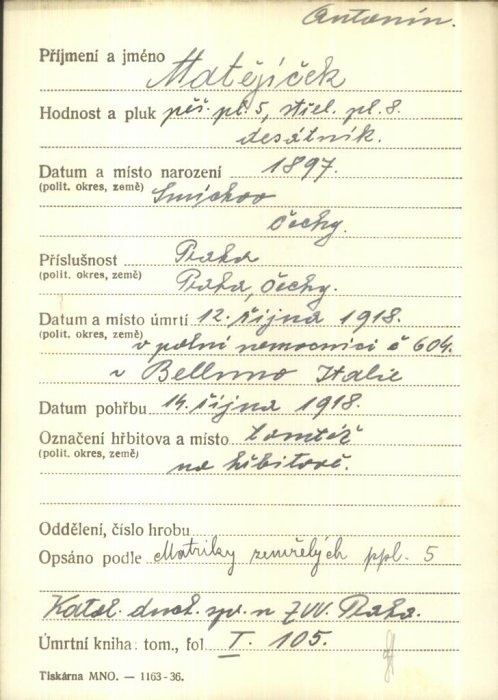 Antonín.
Příjmení a jméno Matějíček
Hodnost a pluk pěš. pl. 5, střel. pl. 8.
desátník.
Datum a místo narození 1897.
(polit. okres, země) Smíchov
Čechy.
Příslušnost Praha
(polit. okres, země) Praha, Čechy.
Datum a místo úmrtí 12. října 1918.
(polit. okres, země) v polní nemocnici č 604.
v Belluno Italie
Datum pohřbu 14. října 1918.
Označení hřbitova a místo tamtéž
(polit. okres, země) na hřbitově.
Oddělení, číslo hrobu
Opsáno podle Matriky zemřelých ppl. 5
Katol. duch. spr. n ZVV. Praha.
Úmrtní kniha: tom., fol I. 105.
Tiskárna MNO. — 1163-36.